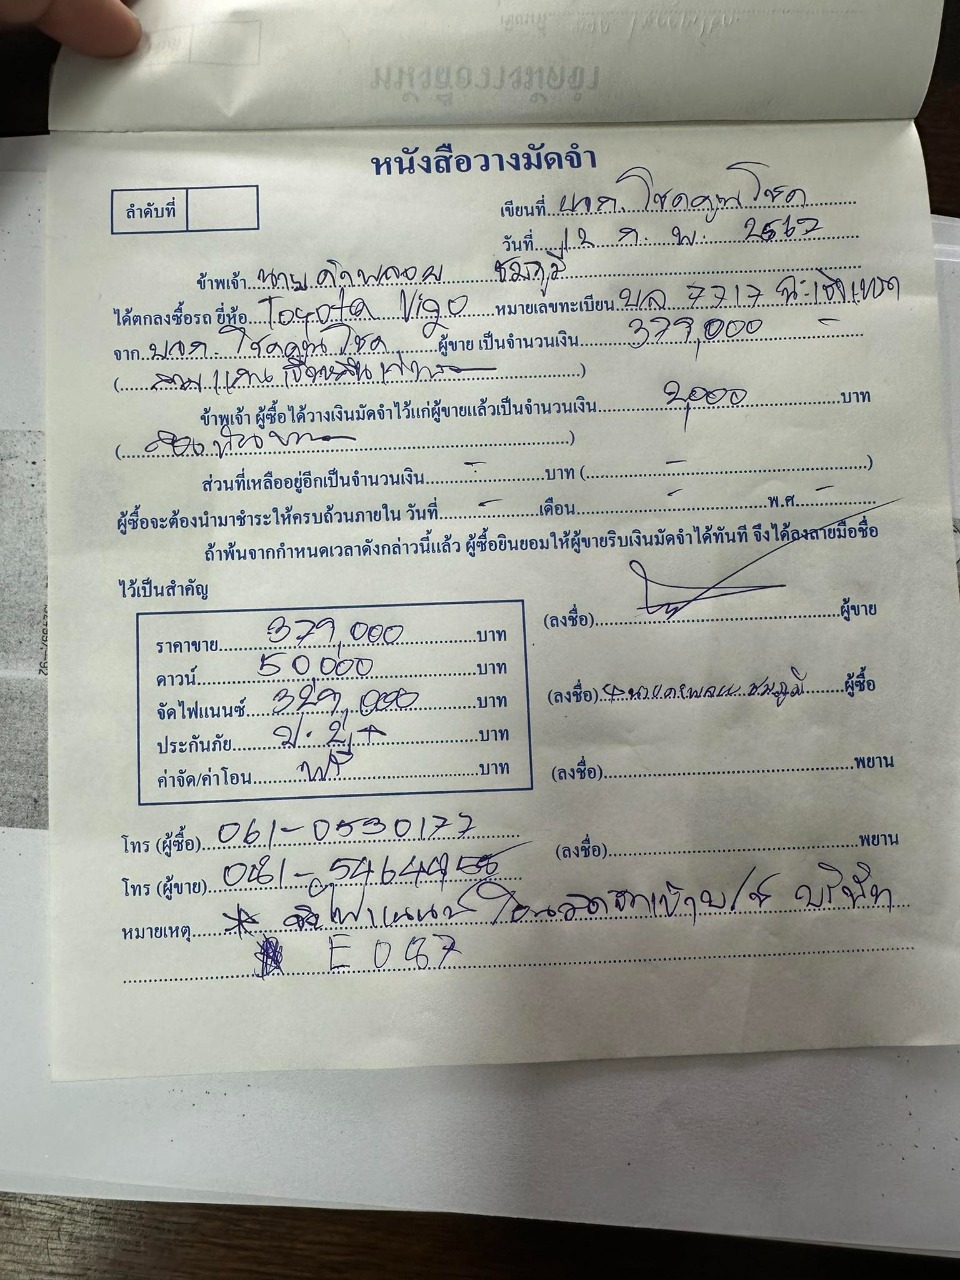 หนังสือวางมัดจำ
ลำดับที่
เขียนที่ บจก. โชคคูณโชค
วันที่ 12 ก. พ. 2567
ข้าพเจ้า นาย คำพลอย ชมภูมี
ได้ตกลงซื้อรถ ยี่ห้อ Toyota Vigo หมายเลขทะเบียน 7717 ฉะเชิงเทรา
จาก บจก. โชคคูณโชค ผู้ขาย เป็นจำนวนเงิน 379,000 -
(สามแสนเจ็ดหมื่นเก้าพัน)
ข้าพเจ้า ผู้ซื้อได้วางเงินมัดจำไว้แก่ผู้ขายแล้วเป็นจำนวนเงิน 2,000 บาท
(สองพันบาท)
ส่วนที่เหลืออยู่อีกเป็นจำนวนเงิน - บาท ( - )
ผู้ซื้อจะต้องนำมาชำระให้ครบถ้วนภายใน วันที่ - เดือน - พ.ศ -
ถ้าพ้นจากกำหนดเวลาดังกล่าวนี้แล้ว ผู้ซื้อยินยอมให้ผู้ขายริบเงินมัดจำได้ทันที จึงได้ลงลายมือชื่อ
ไว้เป็นสำคัญ
(ลงชื่อ) ผู้ขาย
ราคาขาย 379,000 บาท
ดาวน์ 50,000 บาท
(ลงชื่อ) ชมภูมี ผู้ซื้อ
จัดไฟแนนซ์ 329,000 บาท
ประกันภัย ป. 2+ บาท
ค่าจัด/ค่าโอน ฟรี บาท
(ลงชื่อ) พยาน
โทร (ผู้ซื้อ) 061-0530177
(ลงชื่อ) พยาน
โทร (ผู้ขาย)
หมายเหตุ * จัดไฟแนนซ์ บริษัท
E 087